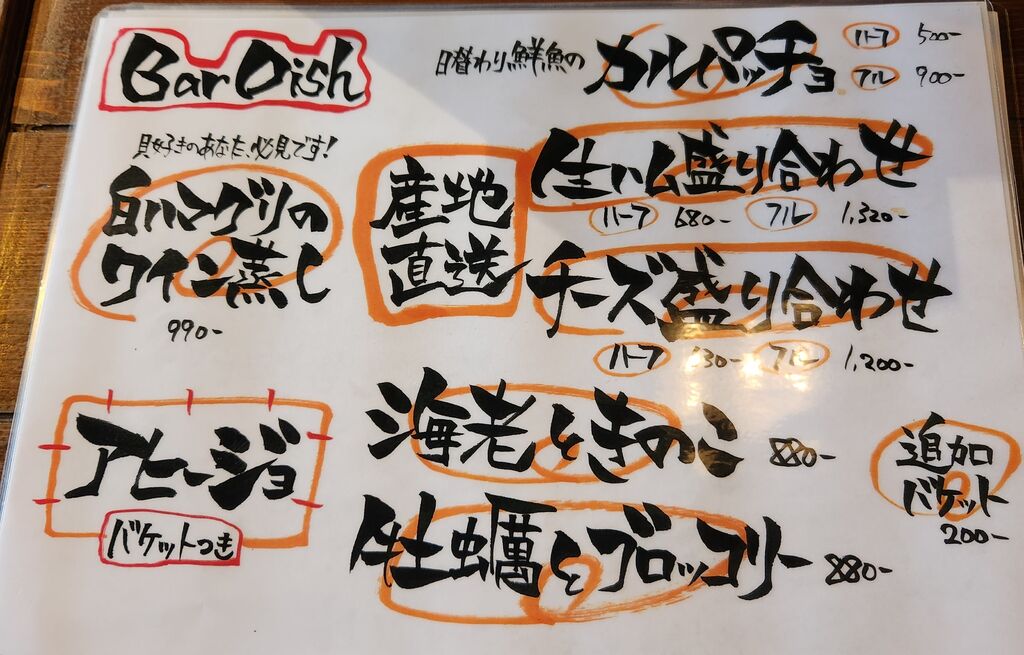 Bar Dish
日替わり鮮魚の カルパッチョ ハーフ 500-
フル 900-
貝好きのあなた、必見です!
白ハマグリの
ワイン蒸し
990-
産地
直送
生ハム盛り合わせ
ハーフ 680- フル 1,320-
チーズ盛り合わせ
ハーフ フル 1,200-
アヒージョ
バケットつき
海老ときのこ 880-
牡蠣とブロッコリー 880-
追加
バケット
200-